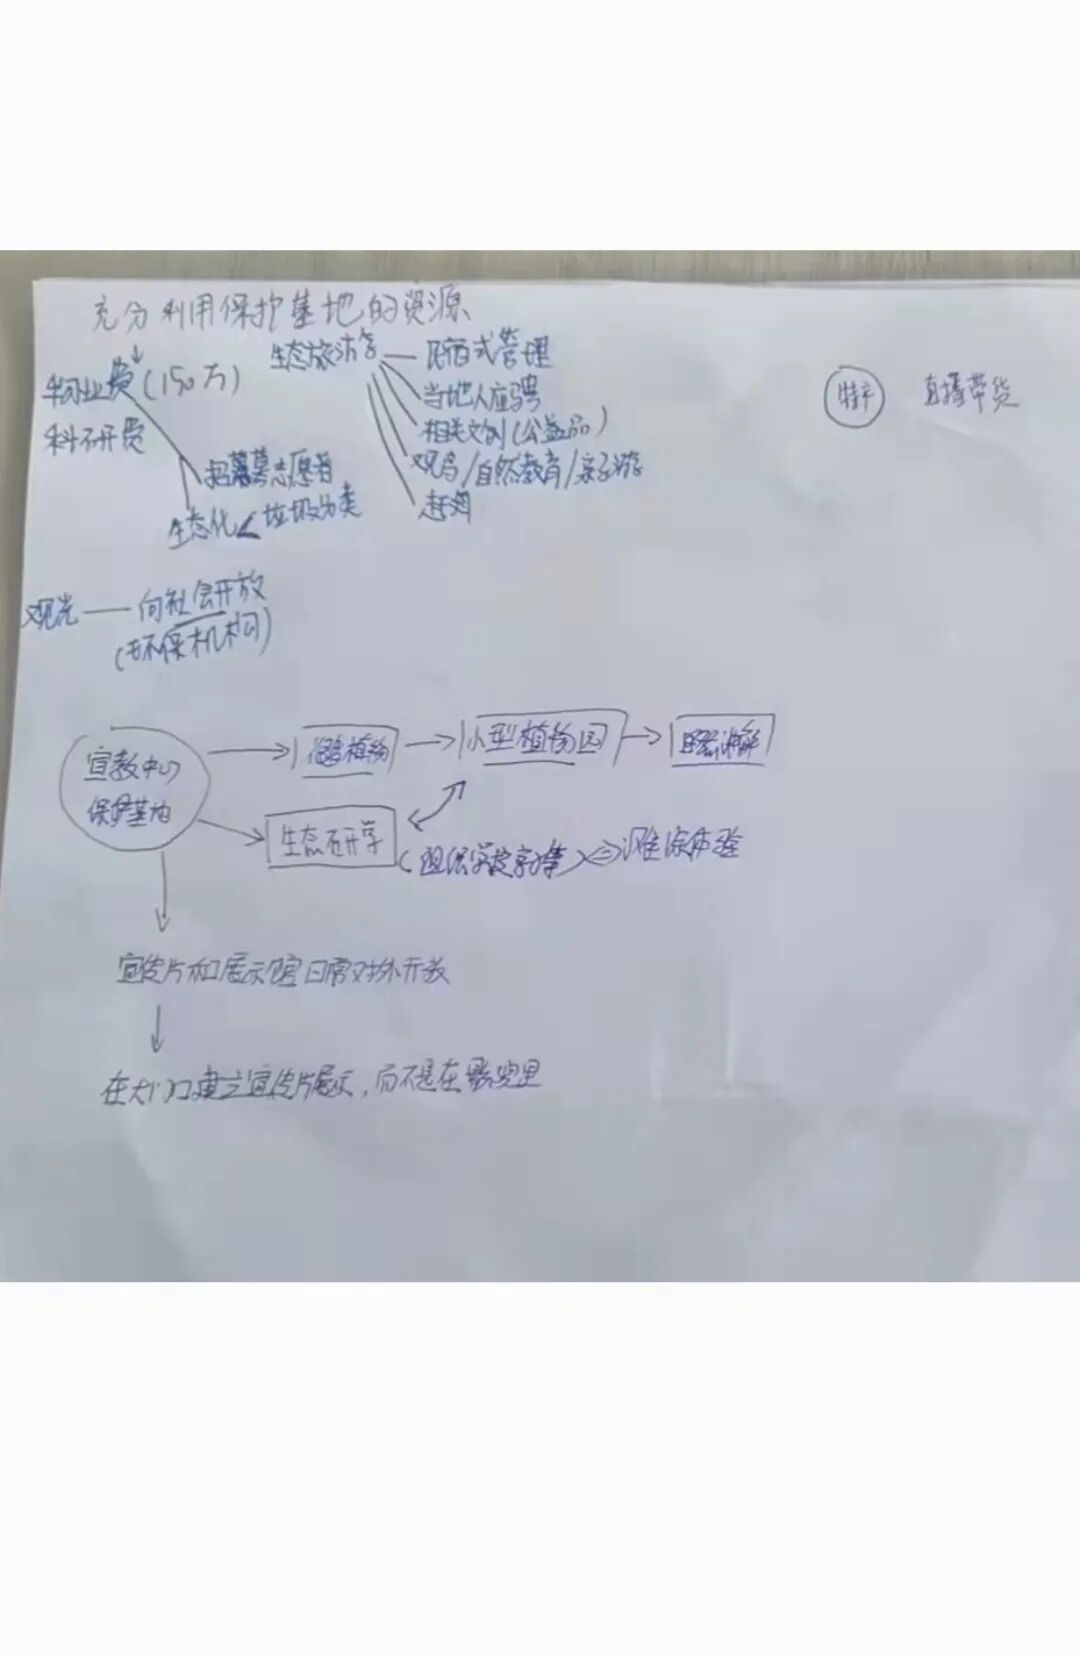 充分利用保护基地的资源
物业费(150万)
科研费
招募志愿者
生态化 垃圾分类
生态旅游
民宿式管理
当地人应聘
相关文创(公益品)
观鸟/自然教育/亲子游
赶海
特产 直播带货
观光 —— 向社会开放
(环保机构)
宣教中心
保护基地
植物
小型植物园
讲解
生态研学
(组织学校亲子等) 滩涂体验
宣传片和展示馆日常对外开放
在大门口建立宣传片展示,而不是在